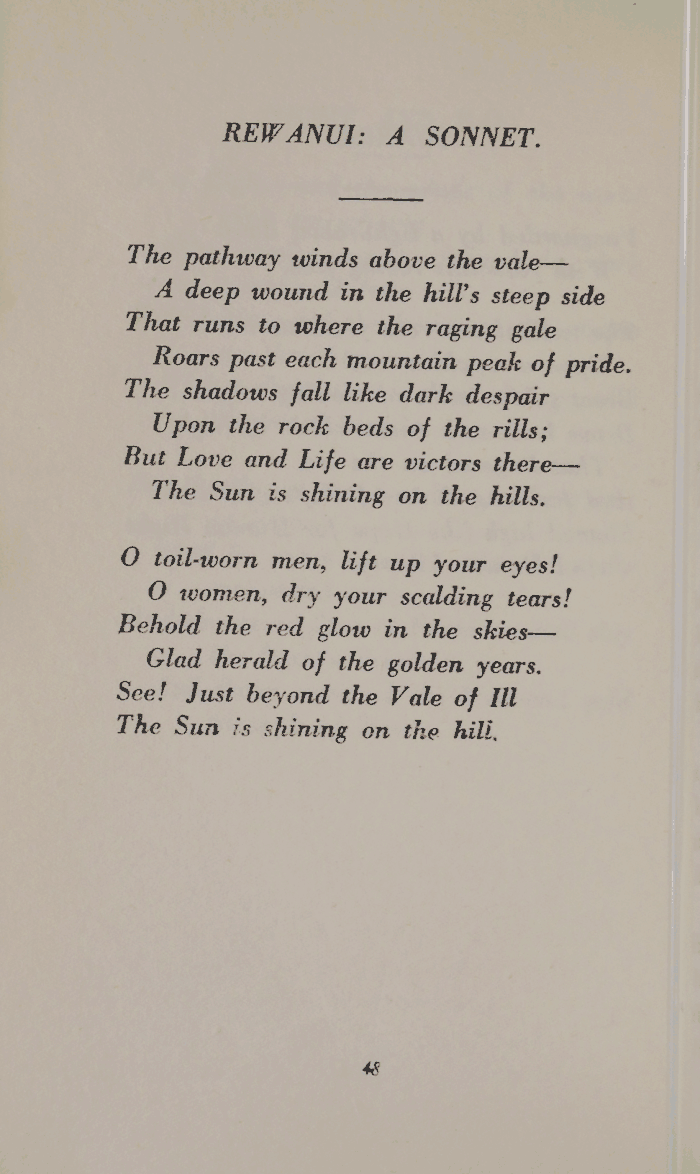 REWANUI: A SONNET.
The pathway winds above the vale—
A deep wound in the hill's steep side
That runs to where the raging gale
Roars past each mountain peak of pride.
The shadows fall like dark despair
Upon the rock beds of the rills;
But Love and Life are victors there—
The Sun is shining on the hills.
O toil-worn men, lift up your eyes!
O women, dry your scalding tears!
Behold the red glow in the skies—
Glad herald of the golden years.
See! Just beyond the Vale of Ill
The Sun is shining on the hill.
48